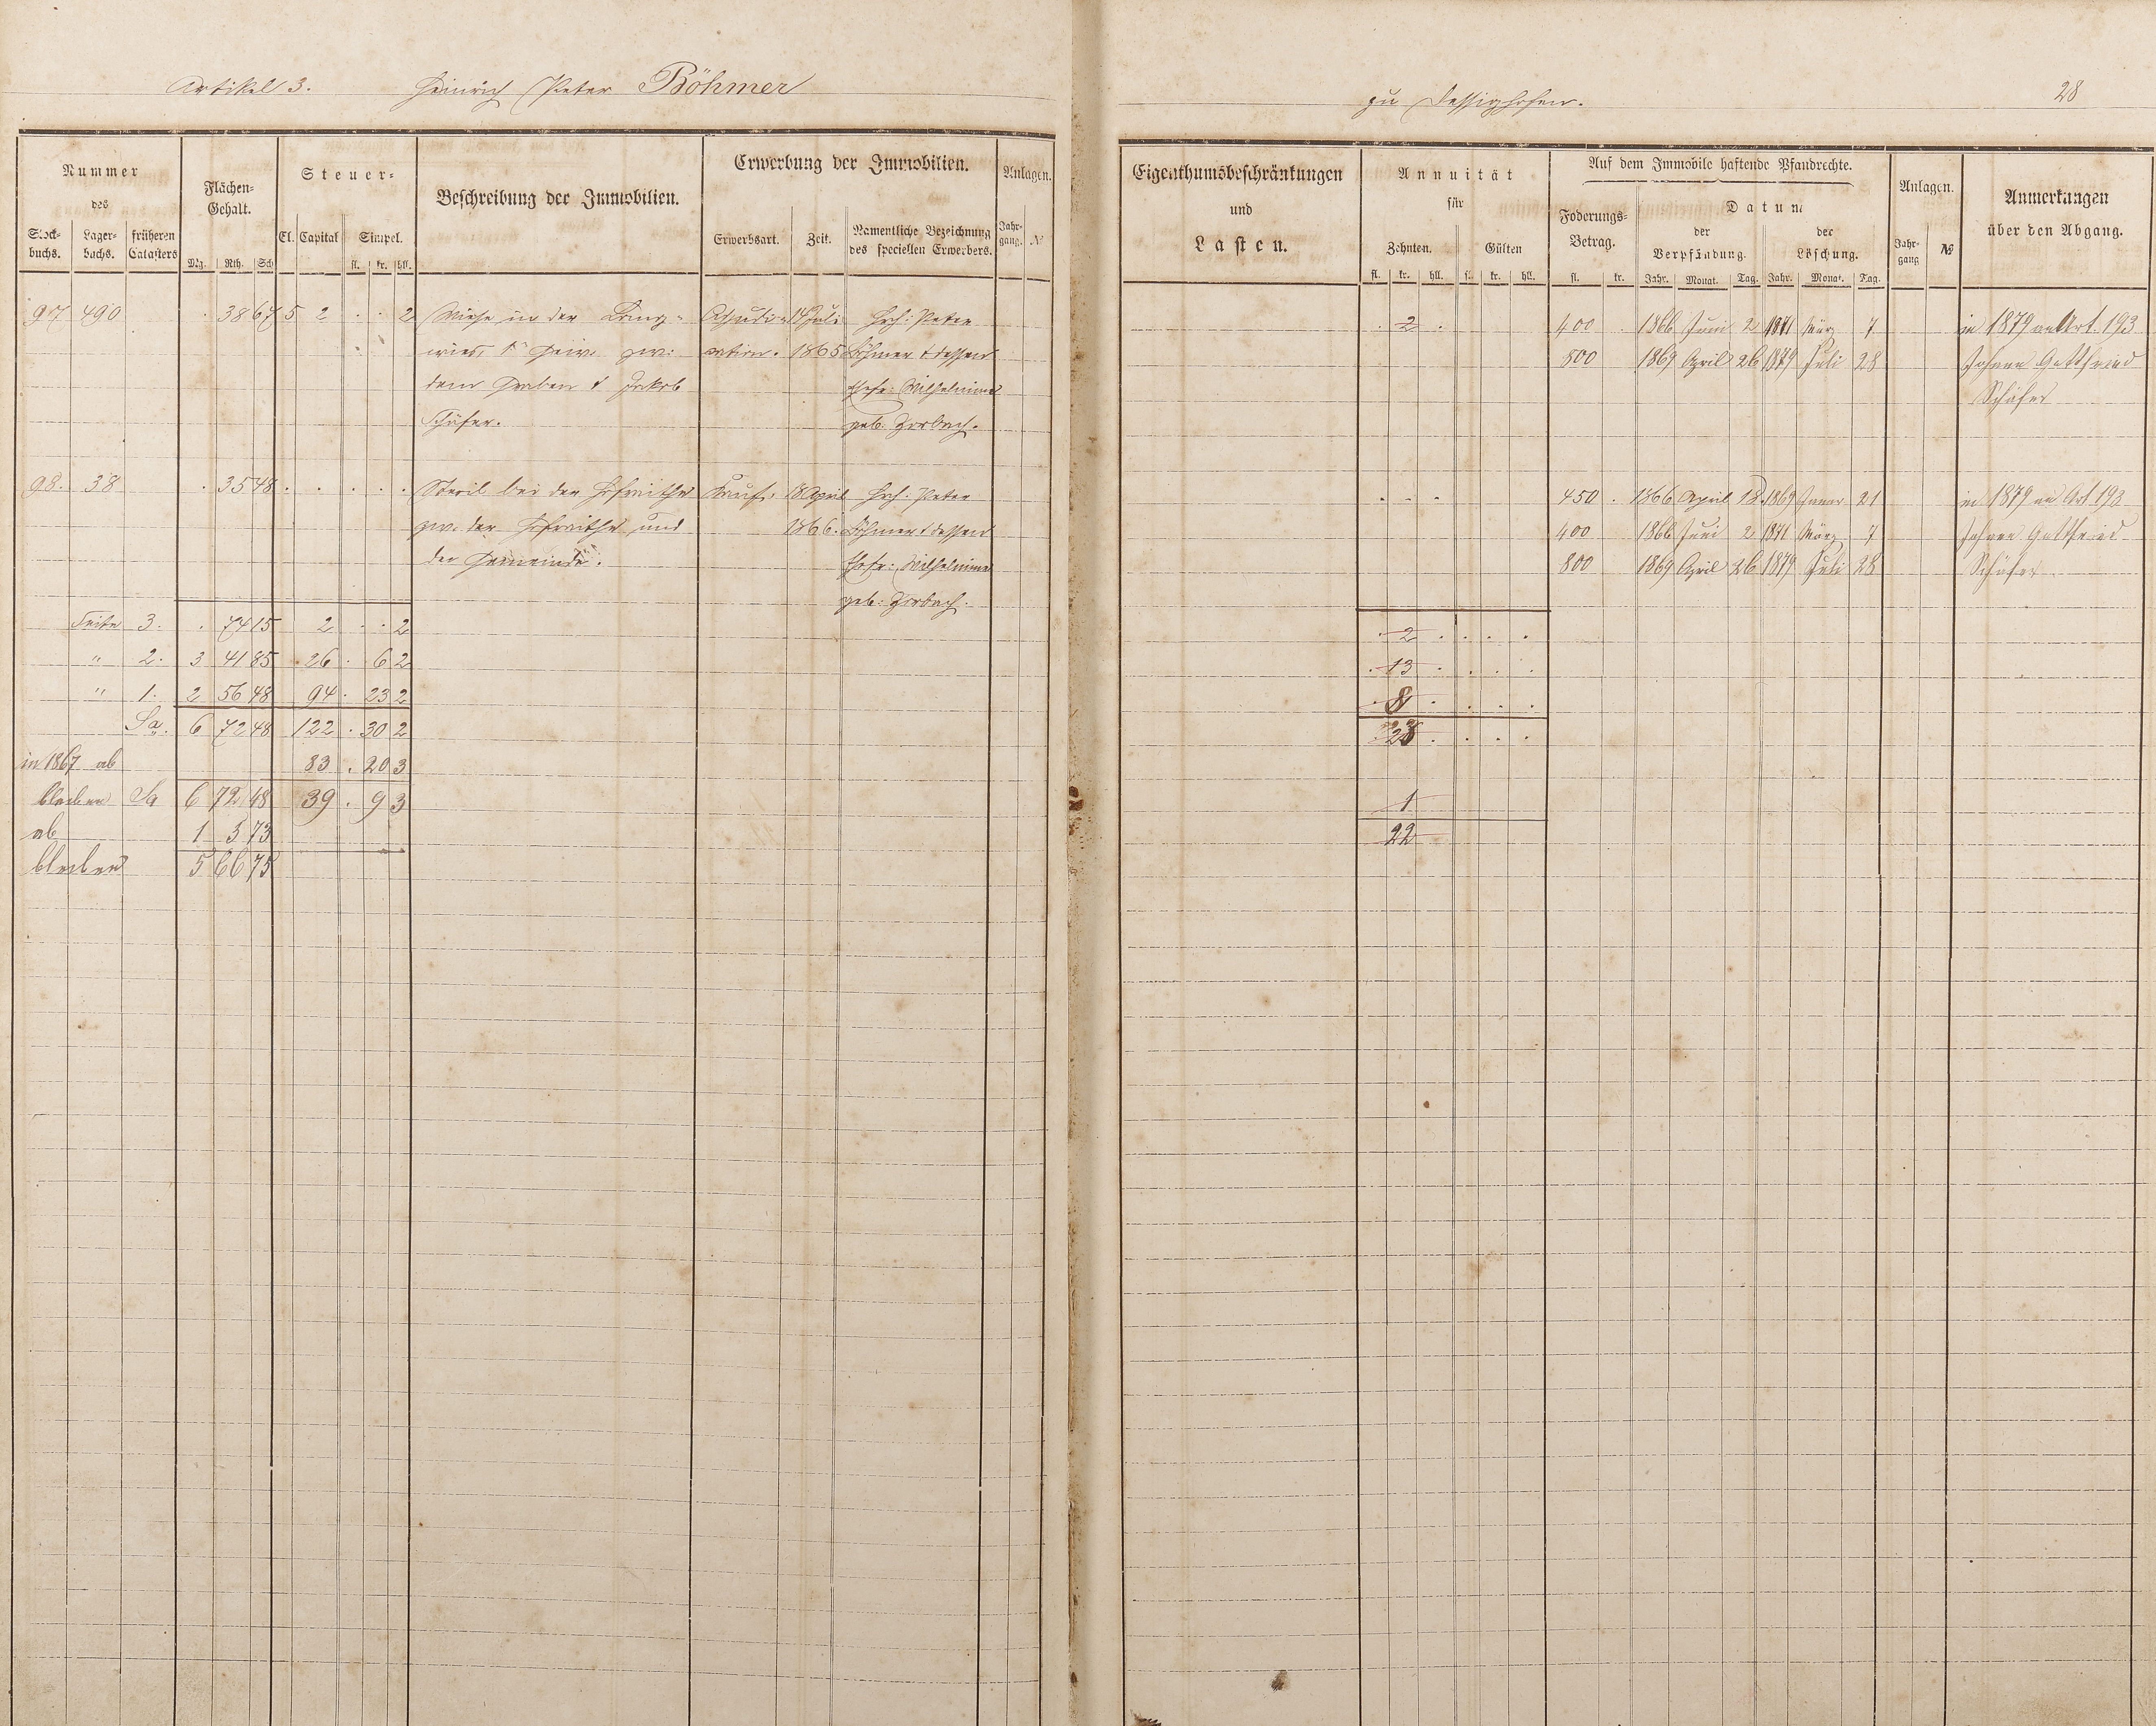 Artikel 3. Heinrich Peter Böhmer
Nummer des
Stock-buchs. Lager-buchs. früheren Catasters
Flächen-Gehalt.
Mg. Rth. Sch
Steuer-
Cl. Capital Simpel.
fl. kr. hll.
Beschreibung der Immobilien.
Erwerbung der Immobilien.
Erwerbsart. Zeit. Namentliche Bezeichnung des speciellen Erwerbers.
Anlagen.
Jahr-gang. №
97 490 . 38 67 5 2 . . 2 Wiese in der 14 Juli Hch: Peter
zw: 1865 Böhmer & dessen
dem Graben & Jakob Ehefr: Wilhelmine
Schäfer. geb. Zorbach.
98. 38 . 35 48 . . . . . bei der Hofraithe Kauf. 18 April Hch. Peter
zw. der Hofraithe und 1866. Böhmer & dessen
der Gemeinde. Ehefr: Wilhelmine
geb: Zorbach.
Seite 3. . 74 15 2 . . 2
" 2. 3 41 85 26 . 6 2
" 1. 2 56 48 94 . 23 2
Sa. 6 72 48 122 . 30 2
in 1867 ab 83 . 20 3
bleiben Sa 6 72 48 39 . 9 3
ab 1 5 73
bleiben 5 66 75
zu Dessighofen.
28
Eigenthumsbeschränkungen und Lasten.
Annuität für
Zehnten. Gülten
fl. kr. hll. fl. kr. hll.
Auf dem Immobile haftende Pfandrechte.
Foderungs-Betrag.
fl. kr.
Datum
der Verpfändung. der Löschung.
Jahr. Monat. Tag. Jahr. Monat. Tag.
Anlagen.
Jahr-gang №
Anmerkungen über den Abgang.
. 2 . 400 . 1866 Juni 2 1871 März 7 in 1879 an Art. 193
800 1869 April 26 1879 Juli 28 Johann Gottfried
Schäfer
. . . 450 . 1866 April 18. 1869 Januar 21 in 1879 an Art 193
400 1866 Juni 2 1871 März 7 Johann Gottfried
800 1869 April 26 1879 Juli 28 Schäfer
. 2 . . . .
. 13 . . . .
. 8 . . . .
23 . . . .
1
22